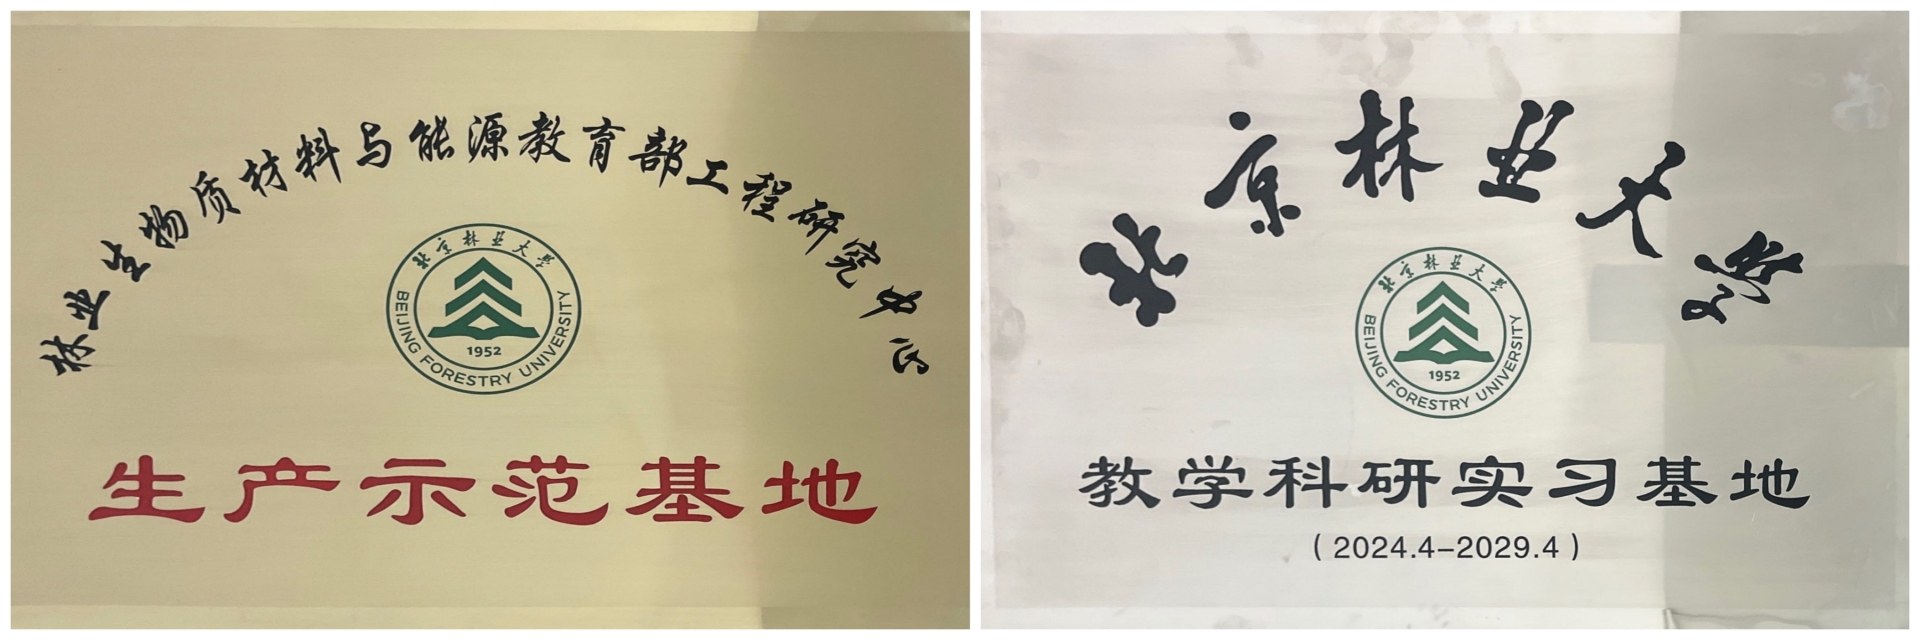 林业生物质材料与能源教育部工程研究中心
北京林业大学
1952
BEIJING FORESTRY UNIVERSITY
生产示范基地
北京林业大学
北京林业大学
1952
BEIJING FORESTRY UNIVERSITY
教学科研实习基地
(2024.4-2029.4)